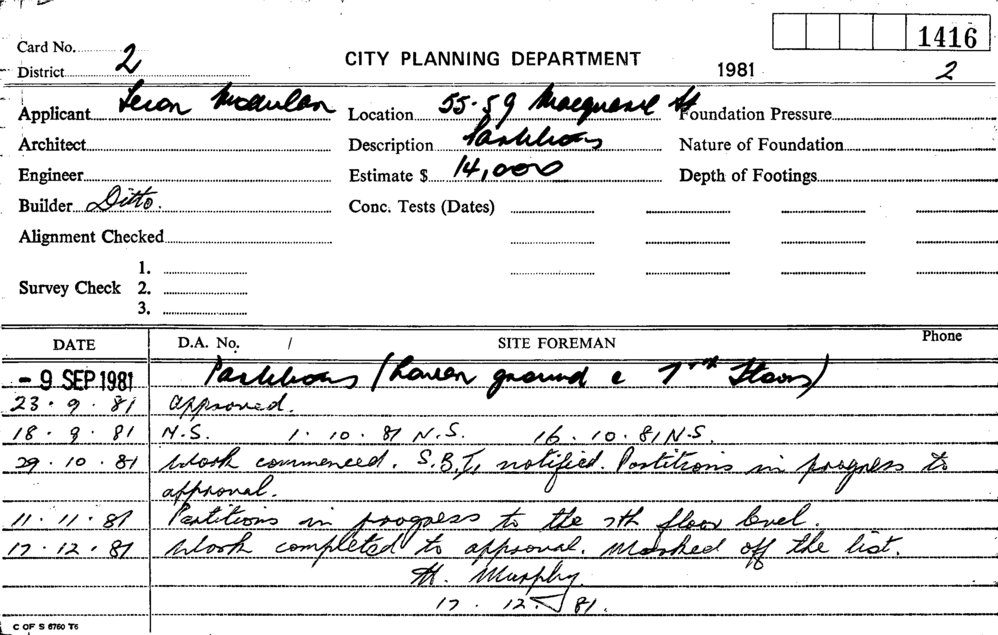 1416
Card No. 2
District
CITY PLANNING DEPARTMENT
1981
2
Applicant Leson
Location 55-59 Macquarie St
Foundation Pressure
Architect
Description Partitions
Nature of Foundation
Engineer
Estimate $ 14,000
Depth of Footings
Builder Ditto.
Conc. Tests (Dates)
Alignment Checked
1.
Survey Check 2.
3.
DATE D.A. No. / SITE FOREMAN Phone
- 9 SEP 1981 Partitions (Lower ground & 7th Floors)
23 . 9 . 81 Approved.
18 . 9 . 81 N.S. 1 . 10 . 81 N.S. 16 . 10 . 81 N.S.
29 . 10 . 81 Work commenced. S.B.I. notified. Partitions in progress to
approval.
11 . 11 . 81 Partitions in progress to the 7th floor level.
17 . 12 . 81 Work completed to approval. Marked off the list.
H. Murphy.
17 . 12 . 81.
C OF S 6760 T6